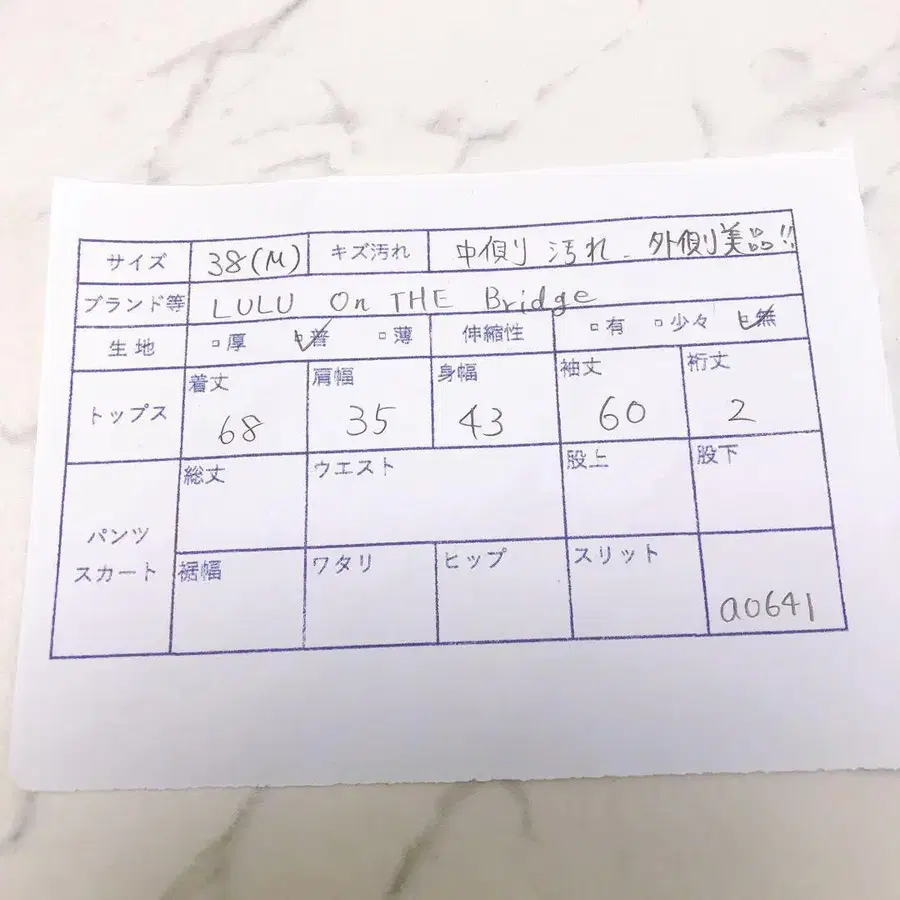 サイズ 38(M) キズ汚れ 中側り 汚れ、外側り美品!!
ブランド等 LULU On THE Bridge
生地 □厚 ☑普 □薄 伸縮性 □有 □少々 ☑無
トップス 着丈 68 肩幅 35 身幅 43 袖丈 60 裄丈 2
パンツ スカート 総丈 ウエスト 股上 股下
裾幅 ワタリ ヒップ スリット a0641